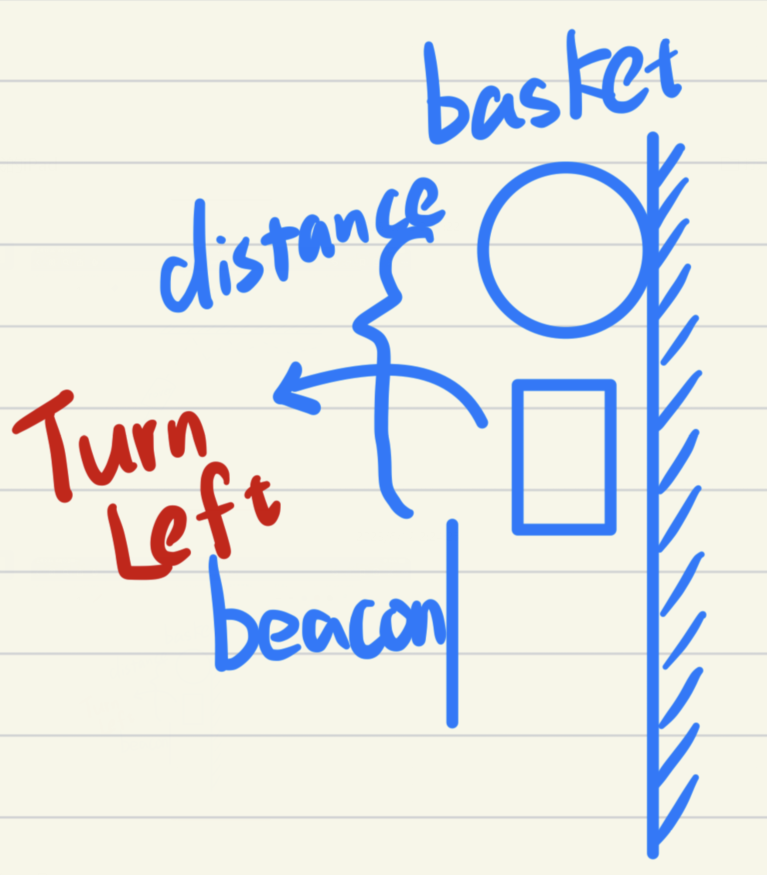 basket
distance
Turn
Left
beacon